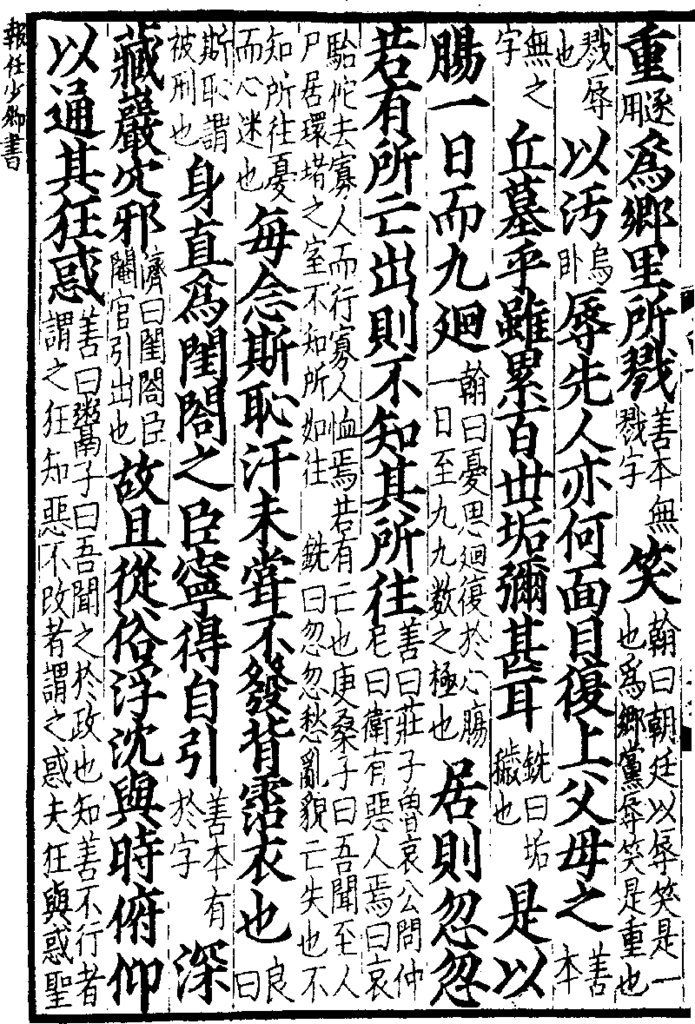 重逐用為鄉里所戮善本無戮字笑翰曰朝廷以辱笑是一也為鄉黨辱笑是重也
戮辱也以汚烏卧辱先人亦何面目復上父母之善本
無之字丘墓乎雖累百世垢彌甚耳銑曰垢穢也是以
腸一日而九廻翰曰憂思廻復於心腸一日至九九數之極也居則忽忽
若有所亡出則不知其所往善曰莊子魯哀公問仲尼曰衛有惡人焉曰哀
駘佗去寡人而行寡人恤焉若有亡也庚桑子曰吾聞至人尸居環堵之室不知所如往 銑曰忽忽愁亂貌亡失也不
知所往憂而心迷也每念斯恥汗未嘗不發背霑衣也良曰
斯恥謂被刑也身直為閨閤之臣寧得自引善本有於字深
藏巖穴邪濟曰閨閤臣閹官引出也故且從俗浮沈與時俯仰
以通其狂惑善曰鬻子曰吾聞之於政也知善不行者謂之狂知惡不改者謂之惑夫狂與惑聖
報任少卿書